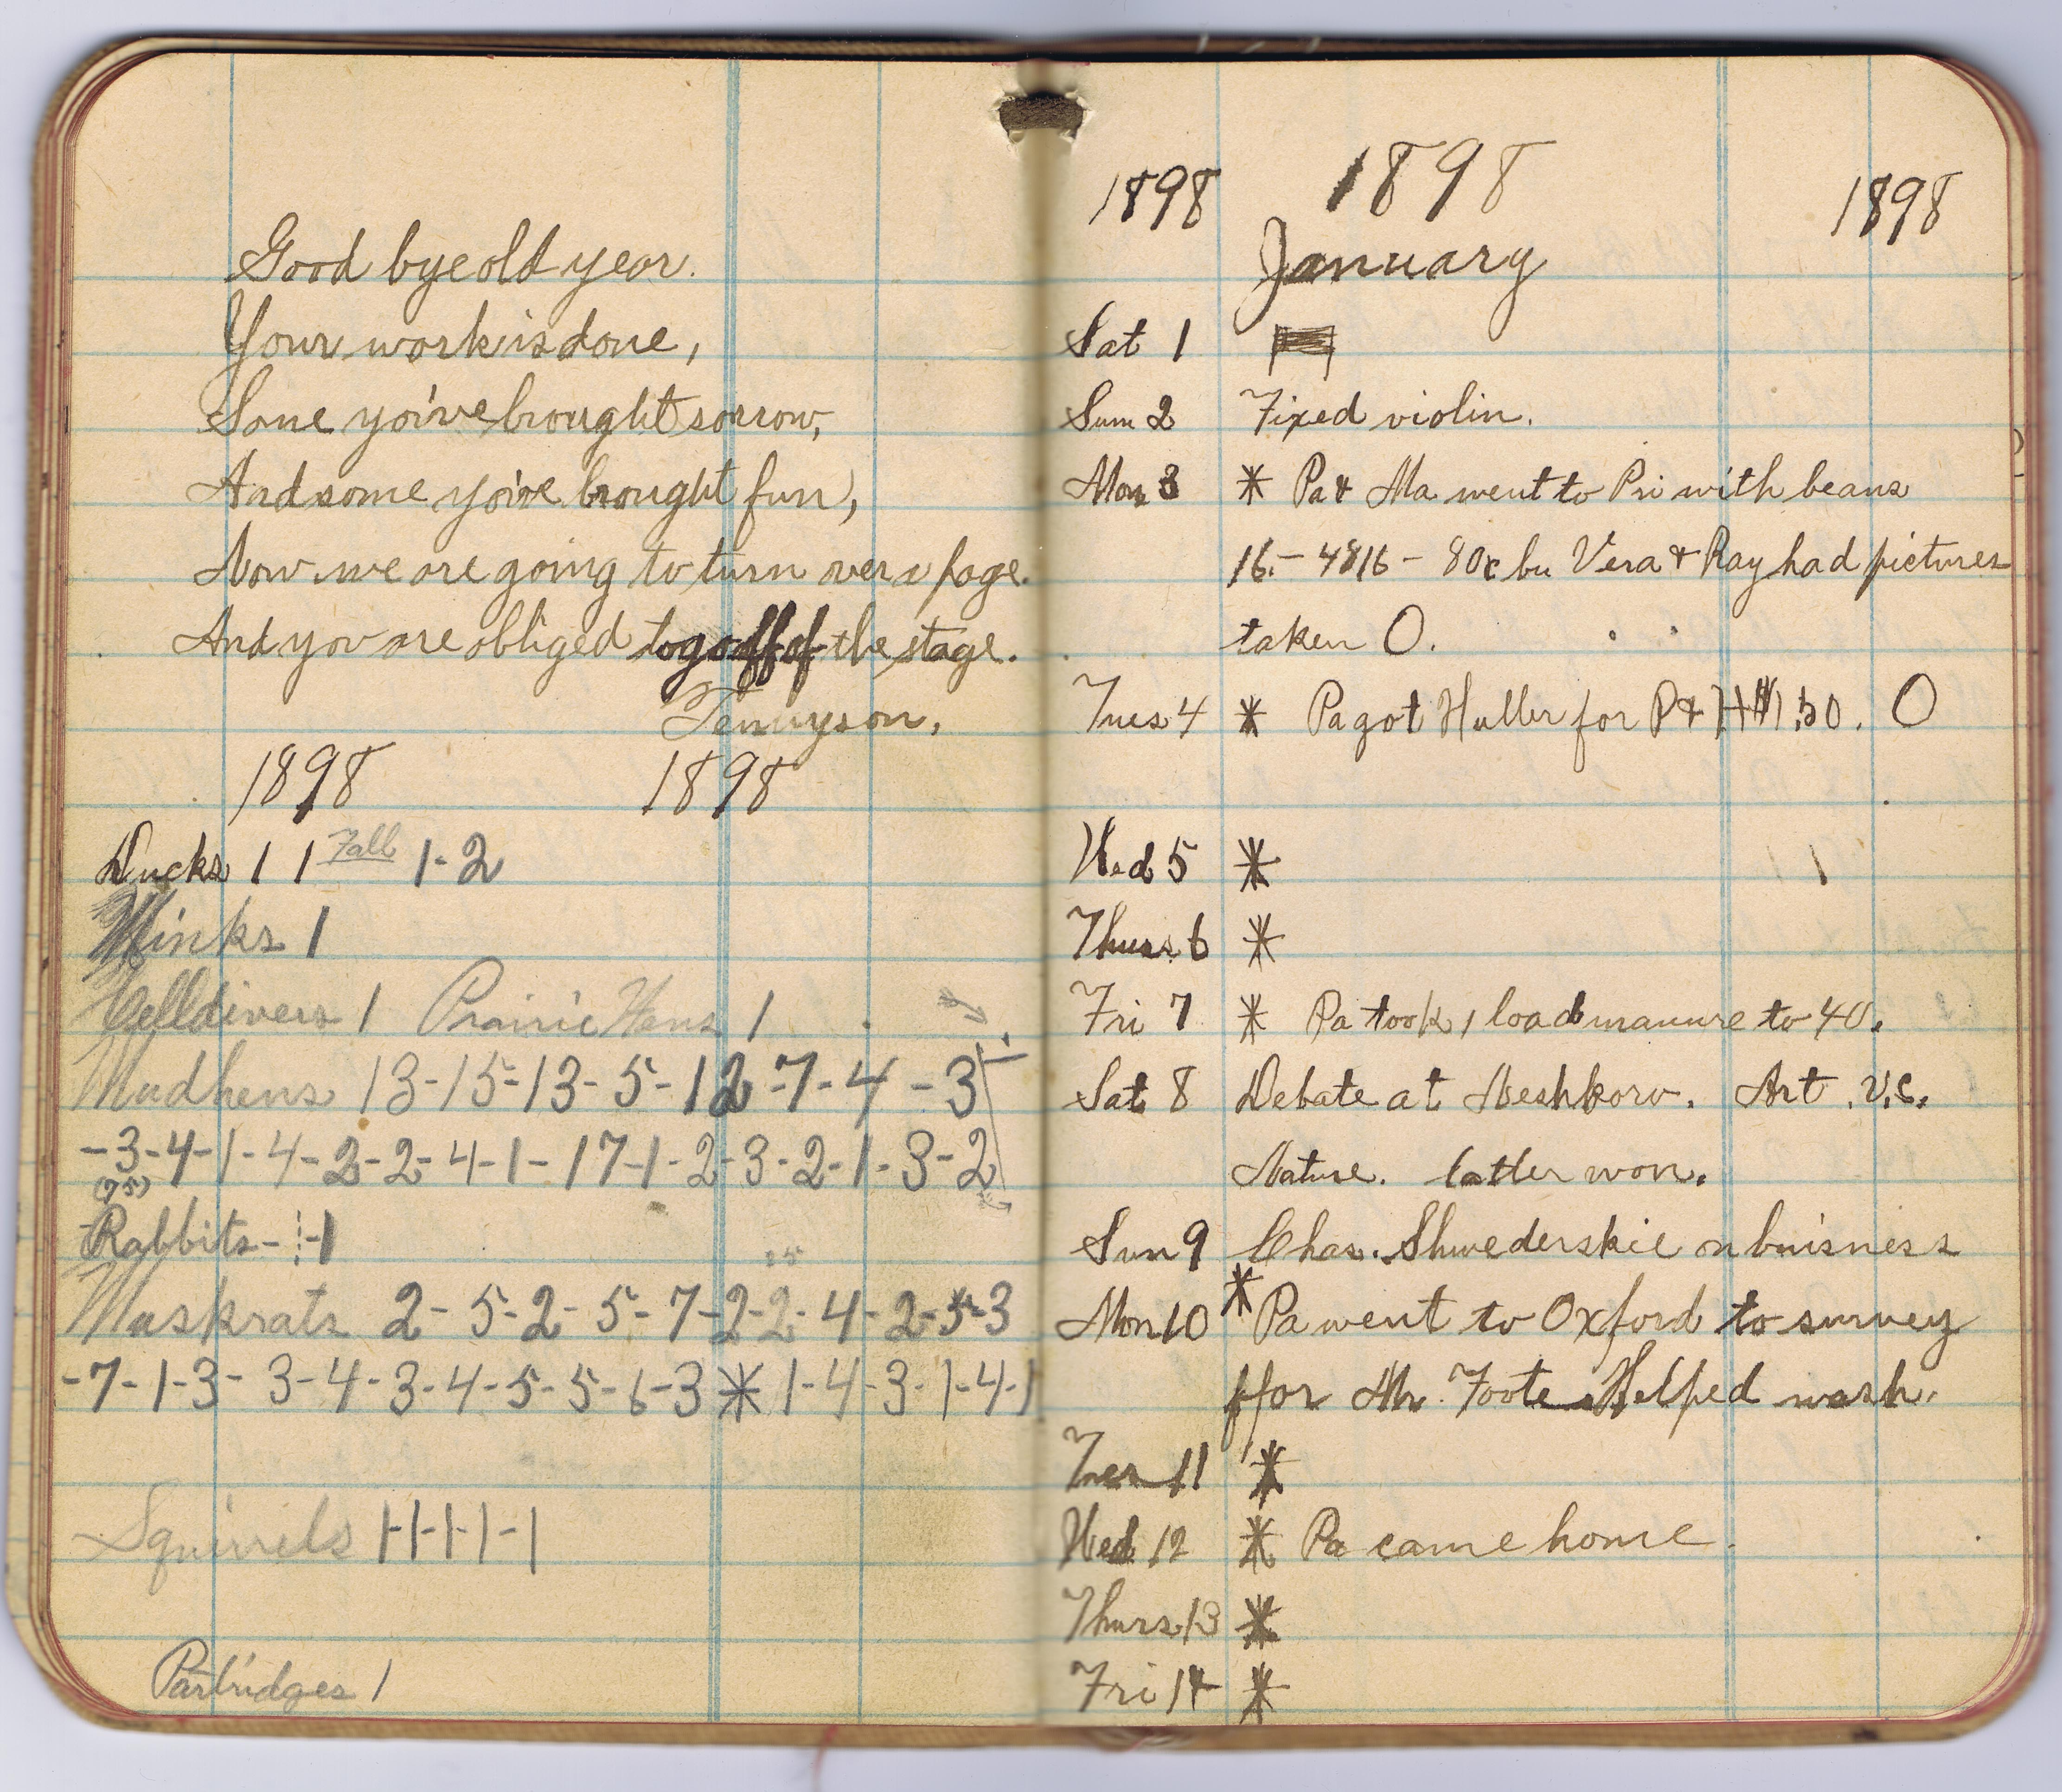 Good bye old year.
Your work is done,
Some yo've brought sorrow,
And some yo've brought fun,
Now we are going to turn over a page.
And you are obliged to go off of the stage.
Tennyson.
1898 1898
Ducks 1 1 Fall 1-2
Minks 1
Helldivers 1 Prairie Hens 1
Mudhens 13-15-13-5-12-7-4-3
-3-4-1-4-2-2-4-1-17-1-2-3-2-1-3-2
Rabbits--1
Muskrats 2-5-2-5-7-2-2-4-2-5-3
-7-1-3-3-4-3-4-5-5-6-3 * 1-4-3-1-4-1
Squirrels 1-1-1-1-1
Partridges 1
1898 1898 1898
January
Sat 1
Sun 2 Fixed violin.
Mon 3 * Pa & Ma went to Pri with beans
16.- 4816 - 80c bu Vera & Ray had pictures
taken O.
Tues 4 * Pa got Huller for P & H $1.50. O
Wed 5 *
Thurs 6 *
Fri 7 * Pa took 1 load manure to 40.
Sat 8 Debate at Neshkoro. Art .v.s.
Nature. latter won.
Sun 9 Chas. Shwederskie on buisness
Mon 10 * Pa went to Oxford to survey
for Mr. Foote Helped wash.
Tues 11 *
Wed 12 * Pa came home.
Thurs 13 *
Fri 14 *